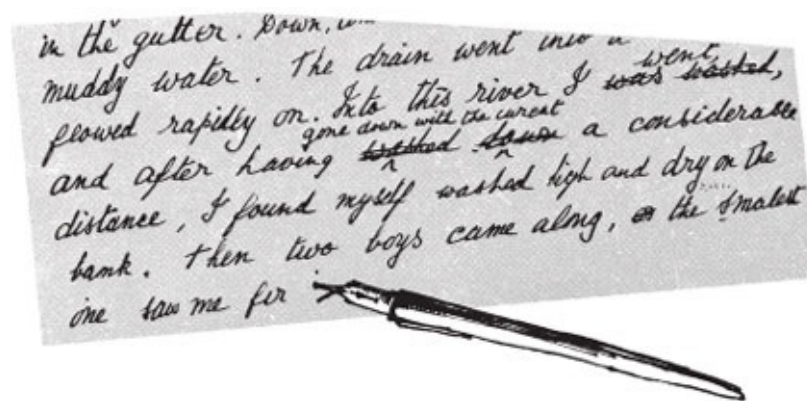 in the gutter. Down,
muddy water. The drain went into a
flowed rapidly on. Into this river I went, was washed,
gone down with the curent
and after having washed down a considerable
distance, I found myself washed high and dry on the
bank. Then two boys came along, or the smalest
one saw me fir